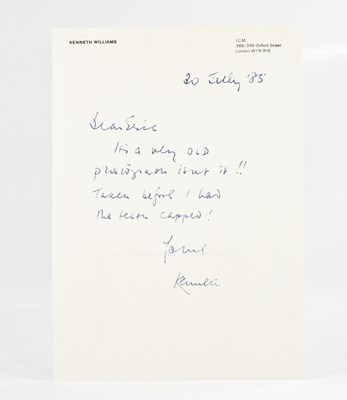 KENNETH WILLIAMS
I.C.M.
388/396 Oxford Street
London W1N 9HE
20 July '85
Dear Eric
It's a very OLD
photograph isn't it !!
Taken before I had
the teeth capped !
Yours
Kenneth